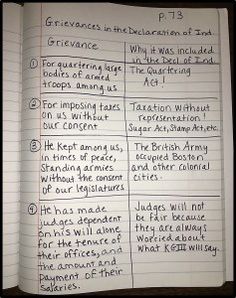 p. 73
Grievances in the Declaration of Ind.
Grievance
Why it was included
in the Decl of Ind.
① For quartering large
bodies of armed
troops among us
The Quartering
Act!
② For imposing taxes
on us without
our consent
Taxation without
representation!
Sugar Act, Stamp Act, etc.
③ He Kept among us,
in times of peace,
Standing armies
without the consent
of our legislatures
The British Army
occupied Boston
and other colonial
cities.
④ He has made
judges dependent
on his will alone
for the tenure of
their offices, and
the amount and
payment of their
salaries.
Judges will not
be fair because
they are always
worried about
what KGIII will say.